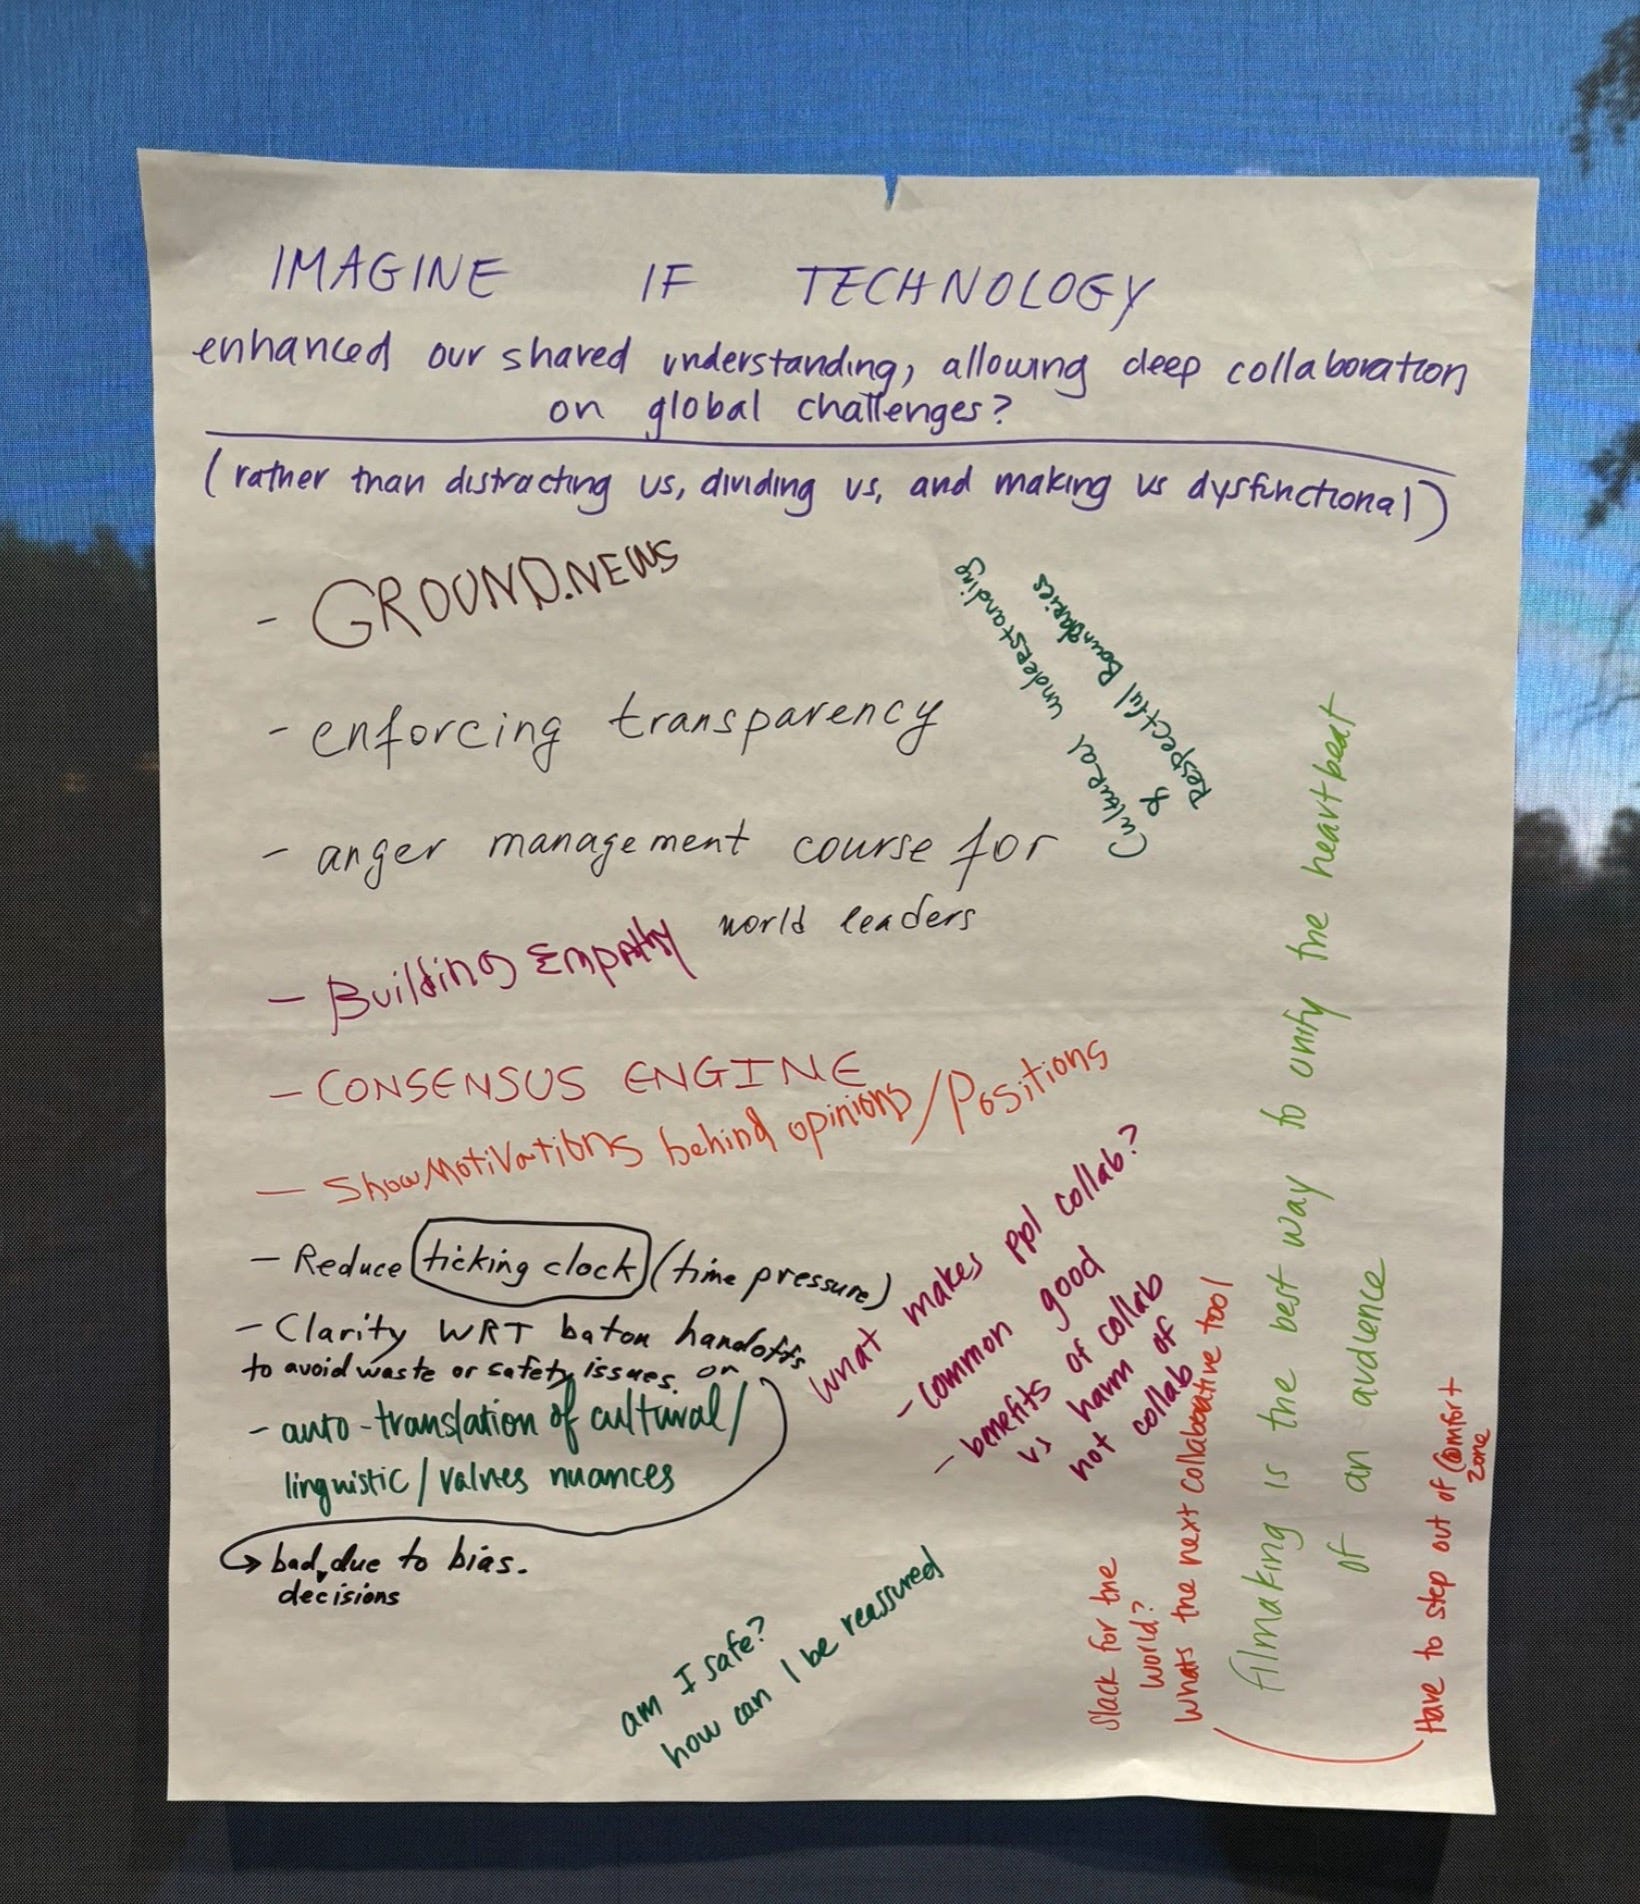 IMAGINE IF TECHNOLOGY
enhanced our shared understanding, allowing deep collaboration
on global challenges?
(rather than distracting us, dividing us, and making us dysfunctional)
- GROUND.NEWS
- enforcing transparency
- anger management course for
world leaders
- Building Empathy
- CONSENSUS ENGINE
- Show Motivations behind opinions/Positions
- Reduce ticking clock (time pressure)
- Clarity WRT baton handoffs
to avoid waste or safety issues. or
- auto-translation of cultural/
linguistic/values nuances
bad, due to bias.
decisions
Cultural understanding
&
Respectful Boundaries
what makes ppl collab?
- common good
- benefits of collab
vs harm of
not collab
am I safe?
how can I be reassured
Slack for the
world?
Whats the next collaborative tool
filmaking is the best way to unify the heartbeat
of an audience
Have to step out of comfort
zone